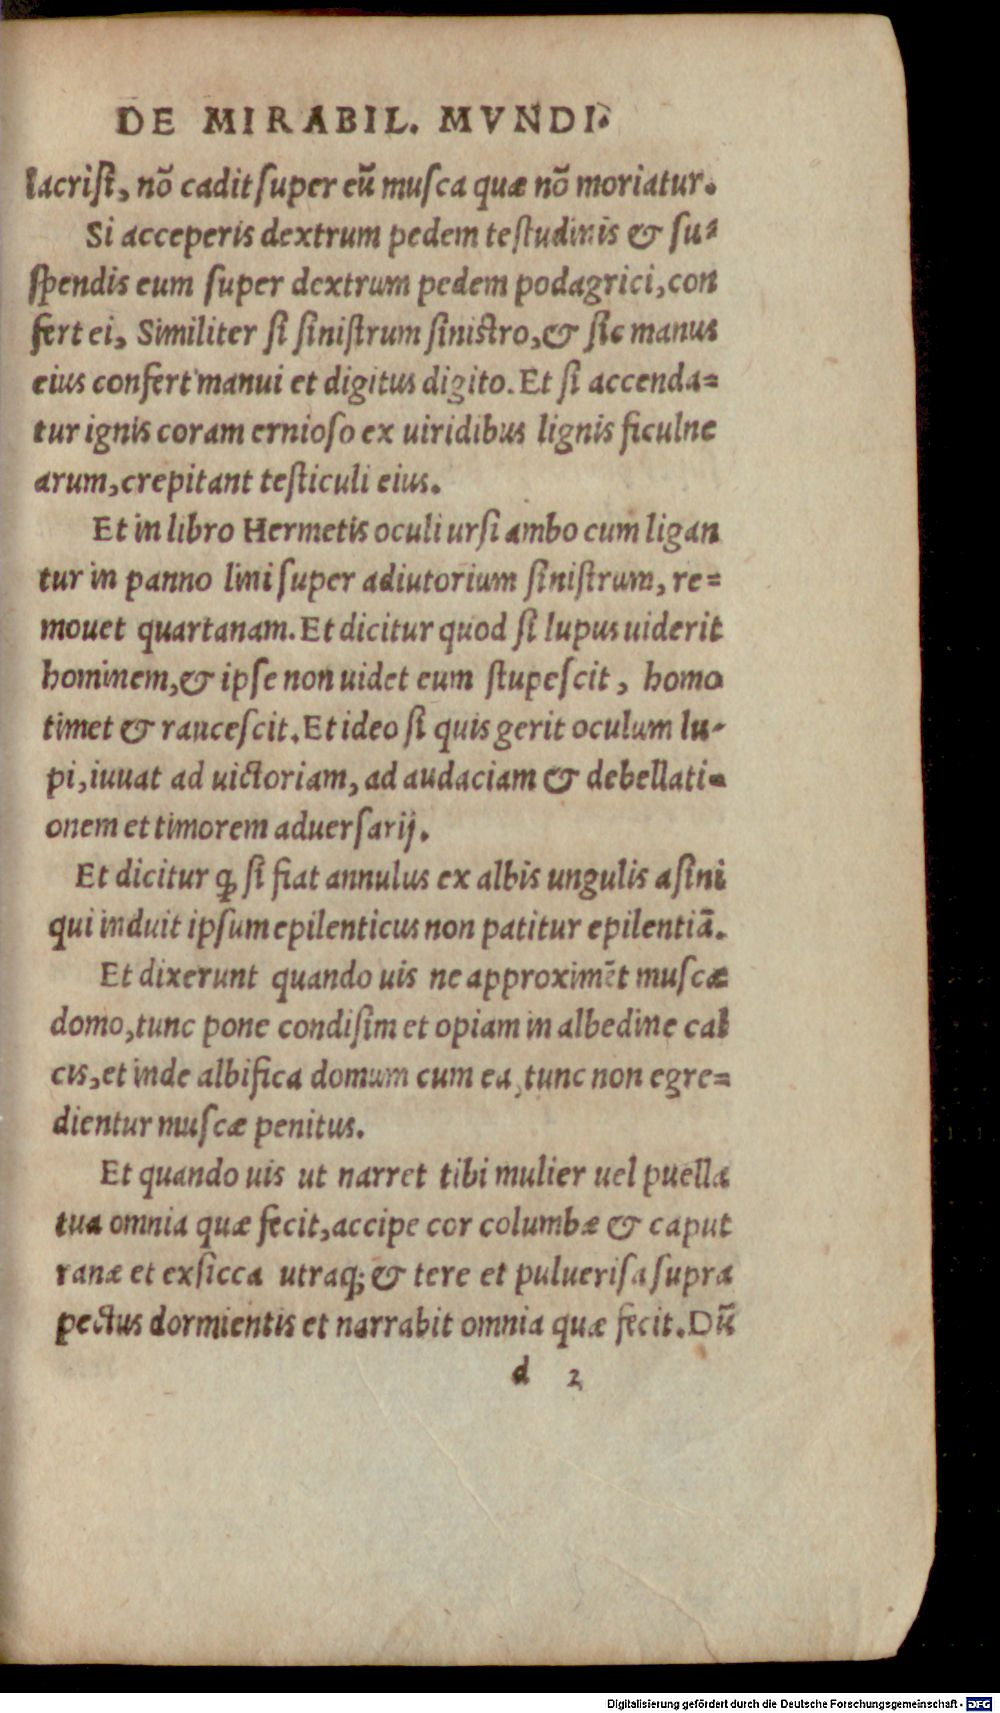 DE MIRABIL. MVNDI.
lacrist, nõ cadit super eũ musca quæ nõ moriatur.
Si acceperis dextrum pedem testudinis & su-
spendis eum super dextrum pedem podagrici, con
fert ei, Similiter si sinistrum sinistro, & sic manus
eius confert manui et digitus digito. Et si accenda-
tur ignis coram ernioso ex uiridibus lignis ficulne
arum, crepitant testiculi eius.
Et in libro Hermetis oculi ursi ambo cum ligan
tur in panno lini super adiutorium sinistrum, re-
mouet quartanam. Et dicitur quod si lupus uiderit
hominem, & ipse non uidet eum stupescit, homo
timet & raucescit. Et ideo si quis gerit oculum lu-
pi, iuuat ad uictoriam, ad audaciam & debellati-
onem et timorem aduersarij.
Et dicitur ꝙ si fiat annulus ex albis ungulis asini
qui induit ipsum epilenticus non patitur epilentiã.
Et dixerunt quando uis ne approximẽt muscæ
domo, tunc pone condisim et opiam in albedine cal
cis, et inde albifica domum cum ea, tunc non egre-
dientur muscæ penitus.
Et quando uis ut narret tibi mulier uel puella
tua omnia quæ fecit, accipe cor columbæ & caput
ranæ et exsicca utraq; & tere et puluerisa supra
pectus dormientis et narrabit omnia quæ fecit. Dũ
d 2
Digitalisierung gefördert durch die Deutsche Forschungsgemeinschaft - DFG